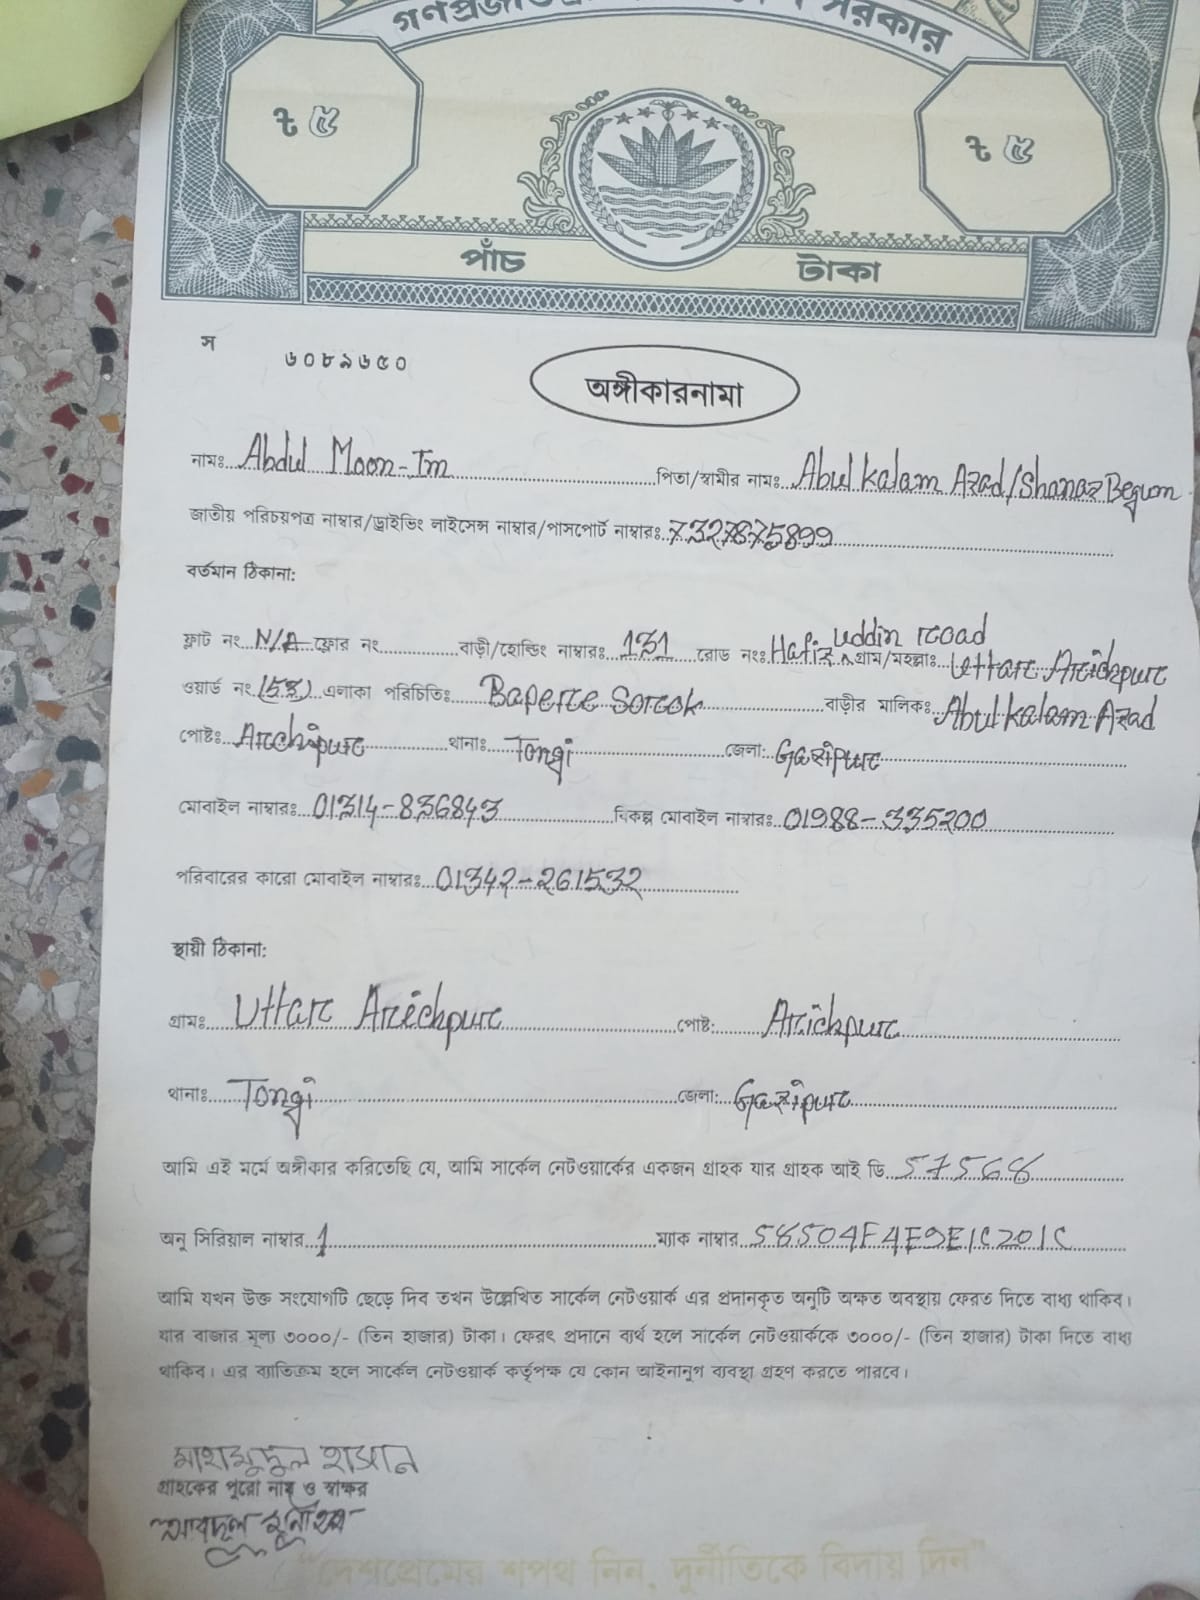 সরকার
৳ ৫
৳ ৫
পাঁচ টাকা
স ৬০৮৯৬৫০
অঙ্গীকারনামা
নামঃ Abdul Moon-Im পিতা/স্বামীর নামঃ Abul kalam Azad/Shanaz Begum
জাতীয় পরিচয়পত্র নাম্বার/ড্রাইভিং লাইসেন্স নাম্বার/পাসপোর্ট নাম্বারঃ 7327875899
বর্তমান ঠিকানা:
ফ্লাট নং N/A ফ্লোর নং বাড়ী/হোল্ডিং নাম্বারঃ 131 রোড নংঃ Hafiz uddin road গ্রাম/মহল্লাঃ Uttar Arichpur
ওয়ার্ড নং (53) এলাকা পরিচিতিঃ Baperce Sorcok বাড়ীর মালিকঃ Abul kalam Azad
পোষ্টঃ Archipur থানাঃ Tongi জেলা: Gazipur
মোবাইল নাম্বারঃ 01314-836843 বিকল্প মোবাইল নাম্বারঃ 01988-335200
পরিবারের কারো মোবাইল নাম্বারঃ 01342-261532
স্থায়ী ঠিকানা:
গ্রামঃ Uttar Arichpur পোষ্ট: Arichpur
থানাঃ Tongi জেলা: Gazipur
আমি এই মর্মে অঙ্গীকার করিতেছি যে, আমি সার্কেল নেটওয়ার্কের একজন গ্রাহক যার গ্রাহক আই ডি 57568
অনু সিরিয়াল নাম্বার 1 ম্যাক নাম্বার 58504F4E9E1C201C
আমি যখন উক্ত সংযোগটি ছেড়ে দিব তখন উল্লেখিত সার্কেল নেটওয়ার্ক এর প্রদানকৃত অনুটি অক্ষত অবস্থায় ফেরত দিতে বাধ্য থাকিব।
যার বাজার মূল্য ৩০০০/- (তিন হাজার) টাকা। ফেরৎ প্রদানে ব্যর্থ হলে সার্কেল নেটওয়ার্ককে ৩০০০/- (তিন হাজার) টাকা দিতে বাধ্য
থাকিব। এর ব্যাতিক্রম হলে সার্কেল নেটওয়ার্ক কর্তৃপক্ষ যে কোন আইনানুগ ব্যবস্থা গ্রহণ করতে পারবে।
মাহমুদুল হাসান
গ্রাহকের পুরো নাম ও স্বাক্ষর
আবদুল
"দেশপ্রেমের শপথ নিন, দুর্নীতিকে বিদায় দিন"